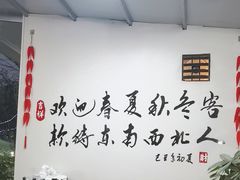 吉祥
欢迎春夏秋冬客
款待东南西北人
乙丑年初夏